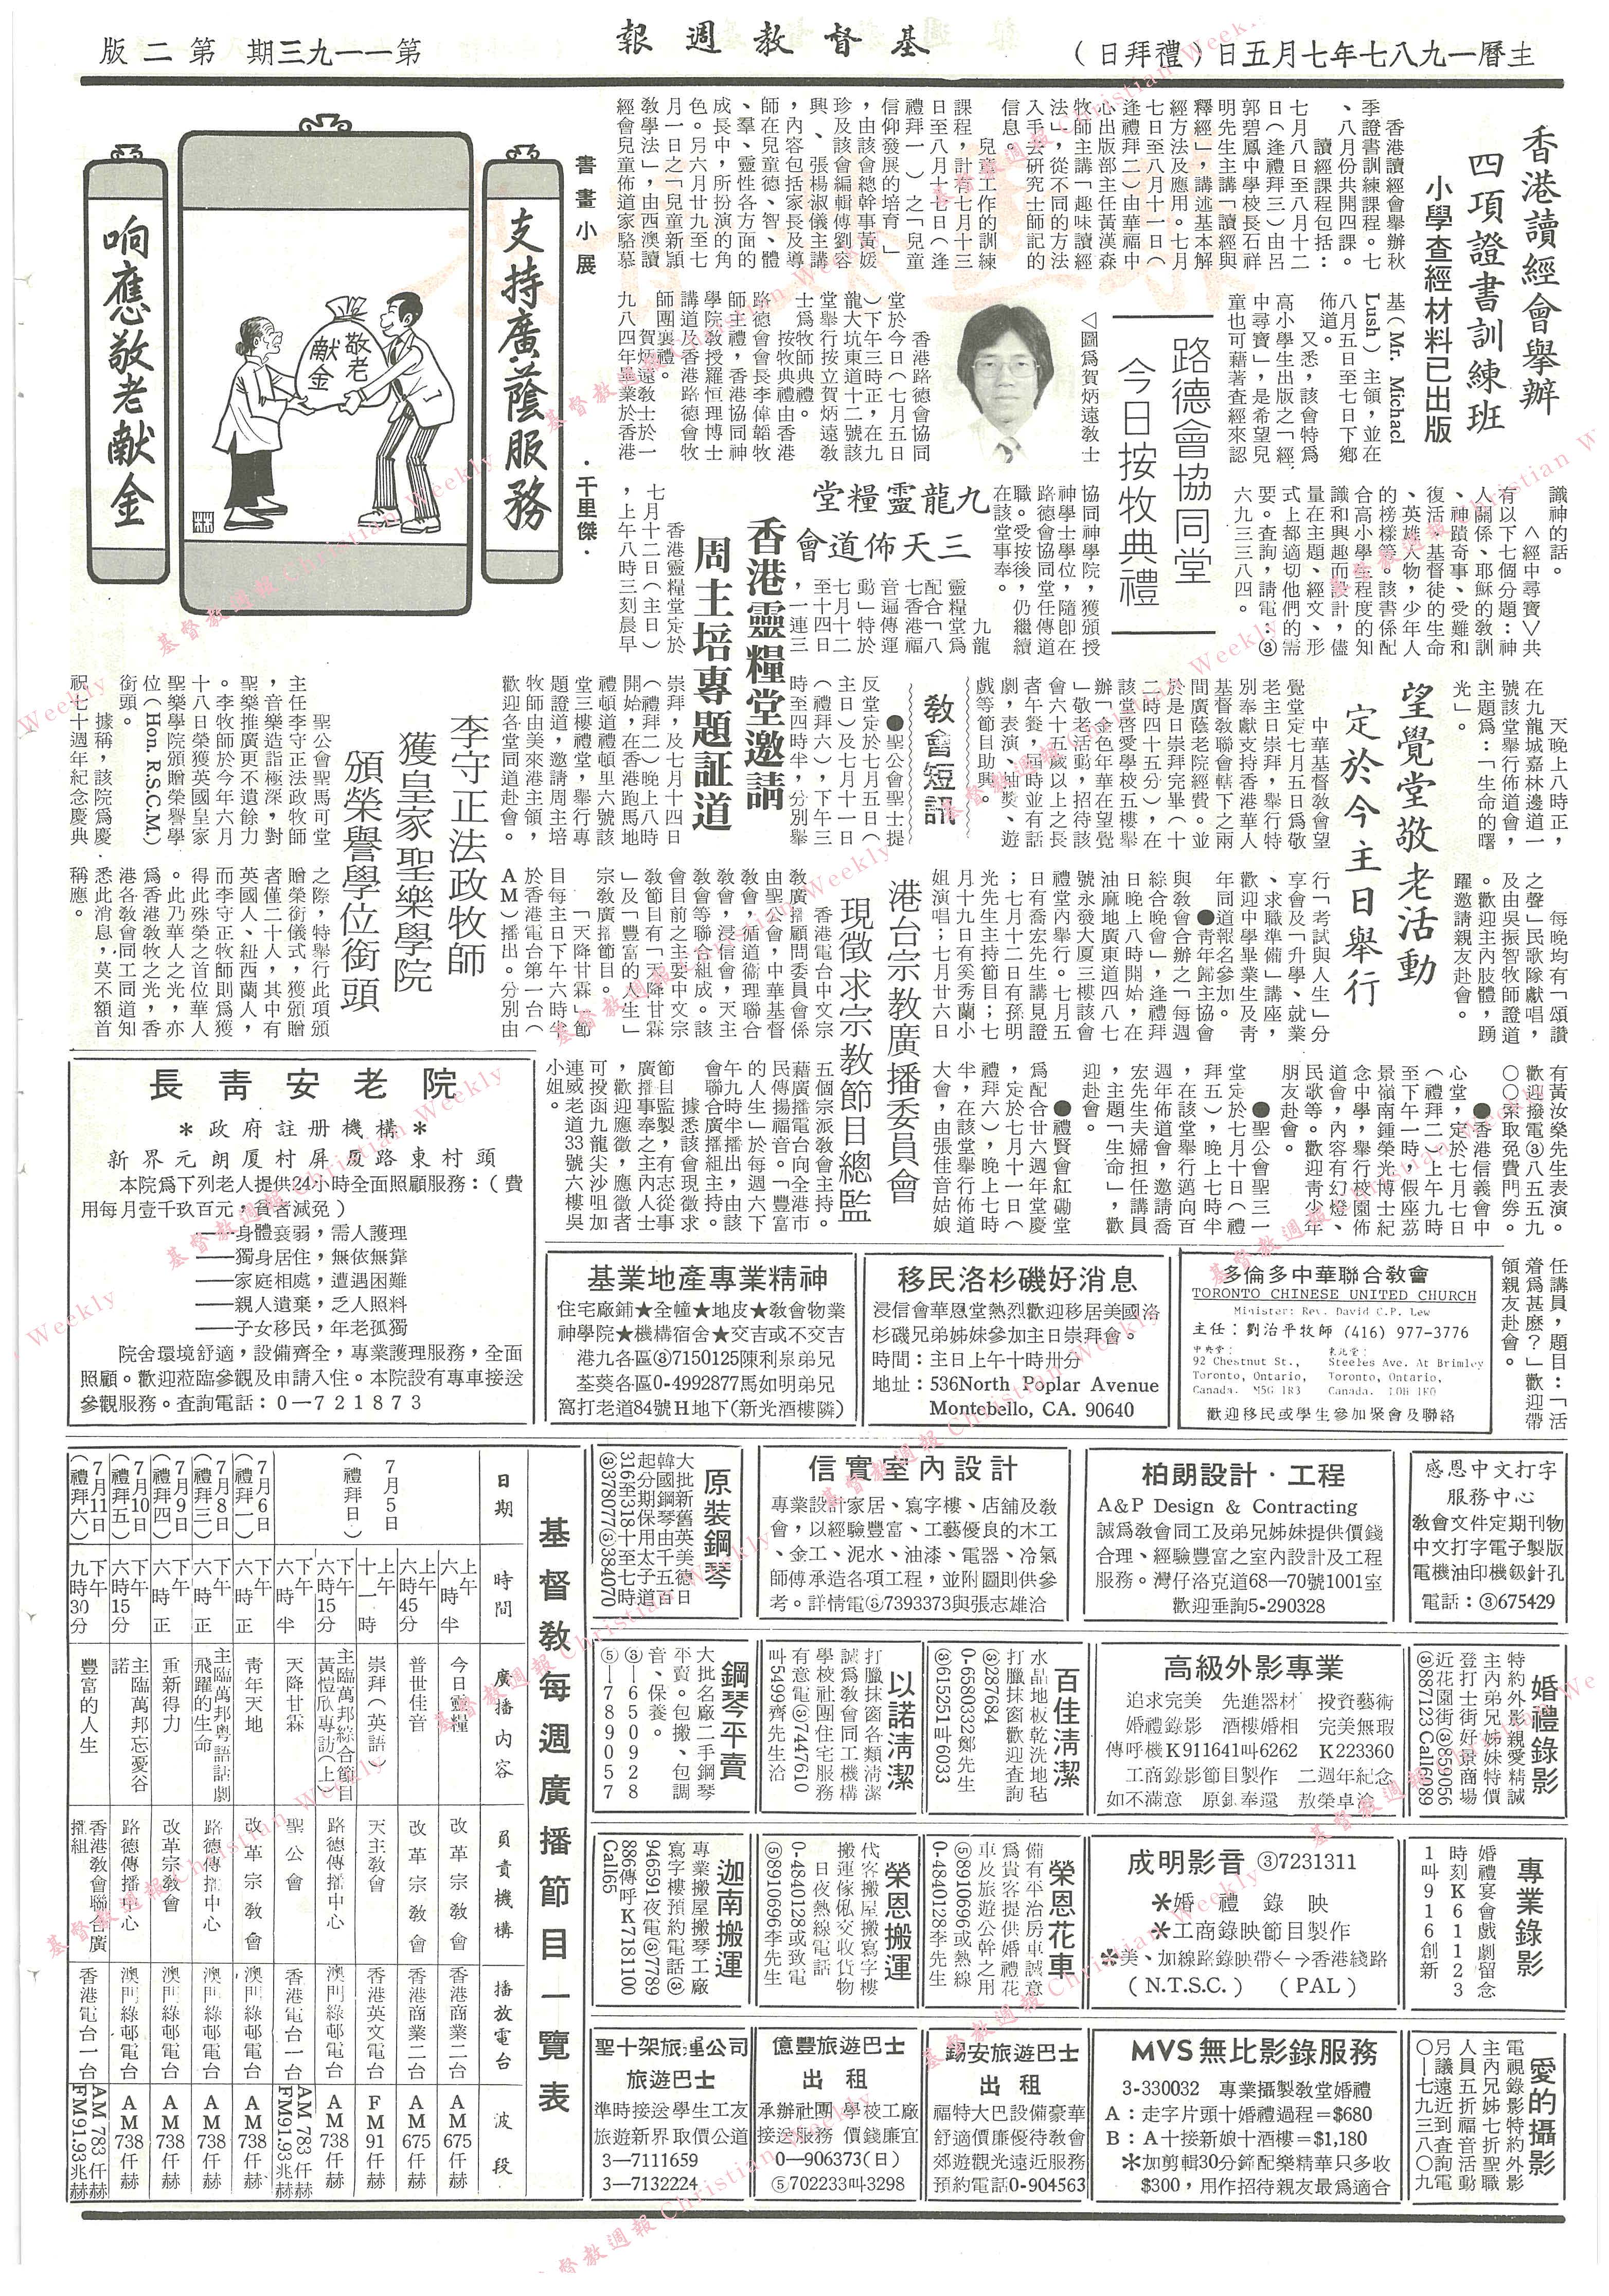 主曆一九八七年七月五日（禮拜日）
基督教週報
第一一九三期　第二版
香港讀經會舉辦
四項證書訓練班
小學查經材料已出版
香港讀經會舉辦秋
季證書訓練課程。七
、八月份共開四課。
讀經課程包括：
七月八日至八月十二
日（逢禮拜三）由呂
郭碧鳳中學校長石祥
明先生主講「讀經與
釋經」，講述基本解
經方法及應用。七月
七日至八月十一日（
逢禮拜二）由華福中
心出版部主任黃漢森
牧師主講「趣味讀經
法」，從不同的方法
入手去研究士師記的
信息。
兒童工作的訓練
課程，計有七月十三
日至八月十七日（逢
禮拜一）之「兒童
信仰發展的培育」
，由該會總幹事黃媛
珍及該會編輯傅劉容
興、張楊淑儀主講
，內容包括家長及導
師在兒童德、智、體
、羣、靈性各方面的
成長中，所扮演的角
色。另六月廿九至七
月一日之「兒童新穎
教學法」，由西澳讀
經會兒童佈道家駱慕
基（Mr. Michacl
Lush）主領，並在
八月五日至七日下鄉
佈道。
又悉，該會特爲
高小學生出版之「經
中尋寶」，是希望兒
童也可藉著查經來認
識神的話。
＜經中尋寶＞共
有以下七個分題：神
人關係、耶穌的教訓
、神蹟奇事、受難和
復活、基督徒的生命
、英雄人物，少年人
的榜樣等。該書係配
合高小學生程度的知
識和興趣而設計，儘
量在主題、經文、形
式上都適切他們的需
要。查詢，請電：③
六九三三八四。
路德會協同堂
今日按牧典禮
◁圖爲賀炳遠教士
香港路德會協同
堂於今日（七月五日
）下午三時正，在九
龍大坑東道十二號該
堂舉行按立賀炳遠教
士爲牧師典禮。
按牧典禮由香港
路德會會長李偉韜牧
師主禮，香港協同神
學院教授羅恒理博士
講道及香港路德會牧
師團襄禮。
賀炳遠教士於一
九八四年畢業於香港
協同神學院，獲頒授
神學士學位，隨卽在
路德會協同堂任傳道
職。受按後，仍繼續
在該堂事奉。
書畫小展
·千里傑·
支持廣蔭服務
响應敬老献金
敬老
献金
九龍靈糧堂
三天佈道會
九龍
靈糧堂爲
配合「八
七香港福
音遍傳運
動」特於
七月十二
至十四日
，一連三
天晚上八時正，
在九龍城嘉林邊道一
號該堂舉行佈道會，
主題爲：「生命的曙
光」。
每晚均有「頌讚
之聲」民歌隊獻唱，
及由吳振智牧師證道
。歡迎主內肢體，踴
躍邀請親友赴會。
香港靈糧堂邀請
周主培專題証道
香港靈糧堂定於
七月十二日（主日）
，上午八時三刻晨早
崇拜，及七月十四日
（禮拜二）晚上八時
開始，在香港跑馬地
禮頓道禮頓里六號該
堂三樓禮堂，舉行專
題證道，邀請周主培
牧師由美來港主領，
歡迎各堂同道赴會。
望覺堂敬老活動
定於今主日舉行
中華基督教會望
覺堂定七月五日爲敬
老主日崇拜，舉行特
別奉獻支持香港華人
基督教聯會轄下之兩
間廣蔭老院經費。並
於是日崇拜完畢（十
二時四十五分），在
該堂啓愛學校五樓舉
辦「金色年華在望覺
」敬老活動，招待該
會六十五歲以上之長
者午餐，屆時並有話
劇，表演、抽獎、遊
戲等節目助興。
教會短訊
●聖公會聖士提
反堂定於七月五日（
主日）及七月十一日
（禮拜六），下午三
時至四時半，分別舉
行「考試與人生」分
享會及「升學、就業
、求職準備」講座，
歡迎中學畢業生及靑
年同道報名參加。
●靑年歸主協會
與教會合辦之「每週
綜合晚會」，逢禮拜
日晚上八時開始，在
油麻地廣東道四八七
號永發大厦三樓該會
禮堂內舉行。七月五
日有喬宏先生講見證
；七月十二日有孫明
光先生主持節目；七
月十九日有奚秀蘭小
姐演唱；七月廿六日
有黃汝燊先生表演。
歡迎撥電③八五五九
〇〇索取免費門券。
●香港信義會中
心堂，定於七月七日
（禮拜二）上午九時
至下午一時，假座荔
景嶺南鍾榮光博士紀
念中學，舉行校園佈
道會，內容有幻燈、
民歌等。歡迎靑少年
朋友赴會。
●聖公會聖三一
堂定於七月十日（禮
拜五），晚上七時半
，在該堂舉行邁向百
週年佈道會，邀請喬
宏先生夫婦担任講員
，主題「生命」，歡
迎赴會。
●禮賢會紅磡堂
爲配合廿六週年堂慶
，定於七月十一日（
禮拜六），晚上七時
半，在該堂舉行佈道
大會，由張佳音姑娘
任講員，題目：「活
着爲甚麽？」歡迎帶
領親友赴會。
李守正法政牧師
獲皇家聖樂學院
頒榮譽學位銜頭
聖公會聖馬可堂
主任李守正法政牧師
，音樂造詣極深，對
聖樂推廣更不遺餘力
。李牧師於今年六月
十八日榮獲英國皇家
聖樂學院頒贈榮譽學
位（Hon. R.S.C.M.）
銜頭。
據稱，該院爲慶
祝七十週年紀念慶典
之際，特舉行此項頒
贈榮銜儀式，獲頒贈
者僅二十人，其中有
英國人、紐西蘭人，
而李守正牧師則爲獲
得此殊榮之首位華人
。此乃華人之光，亦
爲香港教牧之光，香
港各教會同工同道知
悉此消息，莫不額首
稱應。
港台宗教廣播委員會
現徵求宗教節目總監
香港電台中文宗
教廣播顧問委員會係
由聖公會，中華基督
教會，循道衞理聯合
教會，浸信會，天主
教會等聯合組成。該
會目前之主要中文宗
教節目有「天降甘霖
」及「豐富的人生」
宗教廣播節目。
「天降甘霖」節
目每主日下午六時半
於香港電台第一台（
AM）播出。分別由
五個宗派教會主持。
藉廣播電台向全港市
民傳揚福音。「豐富
的人生」於每週六下
午九時半播出，由該
會聯合廣播組主持。
據悉該會現徵求
節目監製，有志從事
廣播事奉之主內人士
，歡迎應徵，應徵者
可投函九龍尖沙咀加
連威老道33號六樓吳
小姐。
長靑安老院
＊政府註册機構＊
新界元朗厦村屏厦路東村頭
本院爲下列老人提供24小時全面照顧服務：（費
用每月壹千玖百元，貧者減免）
——身體衰弱，需人護理
——獨身居住，無依無靠
——家庭相處，遭遇困難
——親人遺棄，乏人照料
——子女移民，年老孤獨
院舍環境舒適，設備齊全，專業護理服務，全面
照顧。歡迎蒞臨參觀及申請入住。本院設有專車接送
參觀服務。查詢電話：0—721873
基業地產專業精神
住宅廠鋪★全幢★地皮★教會物業
神學院★機構宿舍★交吉或不交吉
港九各區③7150125陳利泉弟兄
荃葵各區0-4992877馬如明弟兄
窩打老道84號H地下(新光酒樓隣)
移民洛杉磯好消息
浸信會華恩堂熱烈歡迎移居美國洛
杉磯兄弟姊妹參加主日崇拜會。
時間：主日上午十時卅分
地址：536North Poplar Avenue
Montebello, CA. 90640
多倫多中華聯合敎會
TORONTO CHINESE UNITED CHURCH
Minister: Rev. David C.P. Lew
主任：劉治平牧師 (416) 977-3776
中央堂：
92 Chestnut St.,
Toronto, Ontario,
Canada. M5G 1R3
東北堂：
Steeles Ave. At Brimley
Toronto, Ontario,
Canada. L0H 1E0
歡迎移民或學生參加聚會及聯絡
基督教每週廣播節目一覽表
日期　時間　廣播內容　負責機構　播放電台　波段
7月5日（禮拜日）　上午六時半　今日靈糧　改革宗教會　香港商業二台　AM675仟赫
上午六時45分　普世佳音　改革宗教會　香港商業二台　AM675仟赫
上午十一時　崇拜（英語）　天主教會　香港英文電台　FM91
下午六時15分　主臨萬邦綜合節目　黃愷欣專訪（上）　路德傳播中心　澳門綠邨電台　AM738仟赫
下午六時半　天降甘霖　聖公會　香港電台一台　AM783仟赫　FM91.93兆赫
7月6日（禮拜一）　下午六時正　靑年天地　改革宗教會　澳門綠邨電台　AM738仟赫
7月8日（禮拜三）　下午六時正　主臨萬邦粵語話劇　飛躍的生命　路德傳播中心　澳門綠邨電台　AM738仟赫
7月9日（禮拜四）　下午六時正　重新得力　改革宗教會　澳門綠邨電台　AM738仟赫
7月10日（禮拜五）　下午六時15分　主臨萬邦忘憂谷　諾　路德傳播中心　澳門綠邨電台　AM738仟赫
7月11日（禮拜六）　下午九時30分　豐富的人生　香港教會聯合廣播組　香港電台一台　AM783仟赫　FM91.93兆赫
原裝鋼琴
大批新舊英美德日
韓國鋼琴由千五百
起分期保用太子道
316至318十至七時
③378077③384070
信實室內設計
專業設計家居、寫字樓、店舖及敎
會，以經驗豐富、工藝優良的木工
、金工、泥水、油漆、電器、冷氣
師傅承造各項工程，並附圖則供參
考。詳情電⑤7393373與張志雄洽
柏朗設計·工程
A&P Design & Contracting
誠爲敎會同工及弟兄姊妹提供價錢
合理、經驗豐富之室內設計及工程
服務。灣仔洛克道68—70號1001室
歡迎垂詢5-290328
感恩中文打字
服務中心
敎會文件定期刊物
中文打字電子製版
電機油印機釲針孔
電話：③675429
鋼琴平賣
大批名廠二手鋼琴
平賣。包搬、包調
音、保養。
③—650928
⑤—789057
以諾淸潔
打臘抹窗各類淸潔
誠爲敎會同工機構
學校社團住宅服務
有意電③7447610
叫5499齊先生洽
百佳淸潔
水晶地板乾洗地毡
打臘抹窗歡迎查詢
③287684
0-6580332鄭先生
③615251叫6033
高級外影專業
追求完美　先進器材　投資藝術
婚禮錄影　酒樓婚相　完美無瑕
傳呼機K911641叫6262　K223360
工商錄影節目製作　二週年紀念
如不滿意　原銀奉還　敖榮卓洽
婚禮錄影
特約外影親愛精誠
主內弟兄姊妹特價
登打士街好景商場
近花園街③859056
③887123Call6089
迦南搬運
專業搬屋搬琴工廠
寫字樓預約電話③
946591夜電③7789
886傳呼K7181100
Call65
榮恩搬運
代客搬屋搬寫字樓
搬運傢俬交收貨物
日夜熱線電話
0-4840128或致電
⑤8910696李先生
榮恩花車
備有平治房車誠意
爲貴客提供婚禮花
車及旅遊公幹之用
⑤8910696或熱線
0-4840128李先生
成明影音 ③7231311
＊婚禮錄映
＊工商錄映節目製作
＊美、加線路錄映帶←→香港綫路
(N.T.S.C.)　(PAL)
專業錄影
婚禮宴會戲劇留念
時刻K611123
1叫916創新
聖十架旅運公司
旅遊巴士
準時接送學生工友
旅遊新界取價公道
3—7111659
3—7132224
億豐旅遊巴士
出租
承辦社團　學校工廠
接送服務　價錢廉宜
0—906373(日)
⑤702233叫3298
錫安旅遊巴士
出租
福特大巴設備豪華
舒適價廉優待敎會
郊遊觀光遠近服務
預約電話0-904563
MVS無比影錄服務
3-330032　專業攝製敎堂婚禮
A：走字片頭十婚禮過程＝$680
B：A十接新娘十酒樓＝$1,180
＊加剪輯30分鐘配樂精華只多收
$300，用作招待親友最爲適合
愛的攝影
電視錄影特約外影
主內兄姊七折聖職
人員五折福音活動
另議遠近到查詢電
〇—七九三八〇九
基督教週報 Christian Weekly